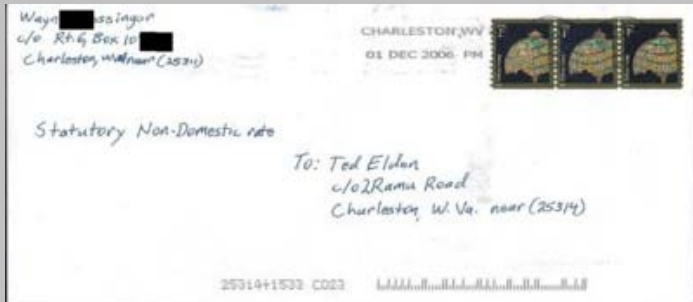 Wayn ssingor
c/o Rt. 6, Box 10
Charleston, near
CHARLESTON, WV
01 DEC 2006 PM
Statutory Non-Domestic rate
To: Ted Eldon
c/o 2 Ramu Road
Charleston, W. Va. near (25314)
25314+1533 C023